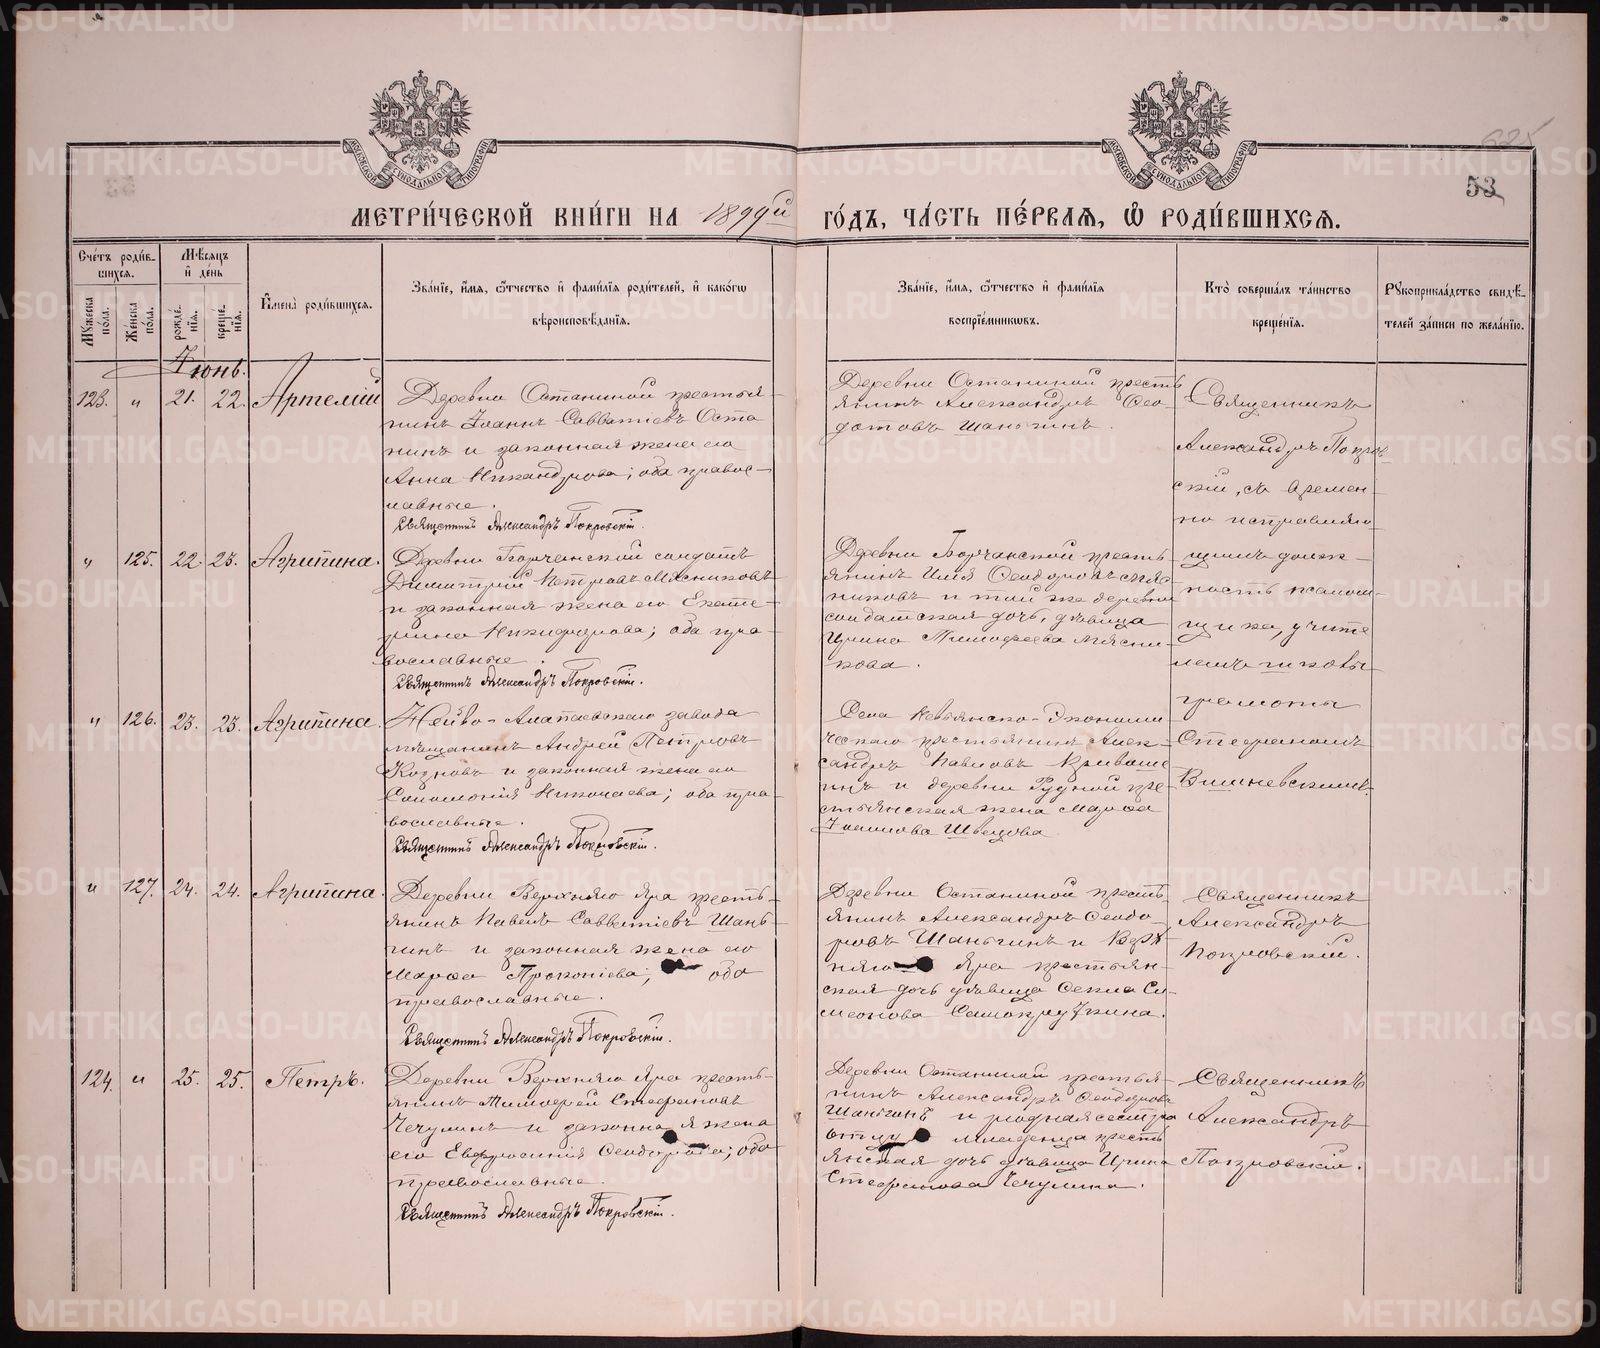 625
53
МЕТРИ́ЧЕСКОЙ КНИ́ГИ НА 1899й ГО́ДЪ, ЧА́СТЬ ПЕ́РВАЯ, Ѡ҆ РОДИ́ВШИХСЯ.
Сче́тъ роди́в-
шихся.
Мѣ́сяцъ
и҆ де́нь
Мꙋ́жеска
по́ла.
Же́нска
по́ла.
рожде́-
нїя.
креще́-
нїя.
И҆мена̀ роди́вшихся.
Зва́нїе, и҆́мя, ѻ҆́тчество и҆ фами́лїя роди́телей, и҆ како́гѡ
вѣроисповѣ́данїя.
Зва́нїе, и҆́мя, ѻ҆́тчество и҆ фами́лїя
воспрїе́мникѡвъ.
Кто̀ соверша́лъ та́инство
креще́нїя.
Рꙋкоприкла́дство свидѣ́-
телей за́писи по жела́нїю.
Іюнь.
123. " 21. 22. Артемій
Деревни Останиной крестья-
нинъ Іоаннъ Савватіевъ Оста
нинъ и законная жена его
Анна Никандрова; оба правос-
лавные.
Священникъ Александръ Покровскій.
Деревни Останиной кресть
янинъ Александръ Ѳео-
дотовъ Шаньгинъ.
Священникъ
Александръ Покров-
скій, съ времен-
но исправляю-
щимъ долж-
ность псалом-
щика, учите
лемъ школы
грамоты
Стефаномъ
Вишневскимъ.
" 125. 22. 23. Агрипина.
Деревни Борчанской солдатъ
Димитрій Петровъ Мясниковъ
и законная жена его Екате-
рина Никифорова; оба пра-
вославные.
Священникъ Александръ Покровскій.
Деревни Борчанской кресть
янинъ Илія Ѳеодоровъ Мяс
никовъ и той же деревни
солдатская дочь, дѣвица
Ирина Тимофеева Мясни-
кова.
" 126. 23. 23. Агрипина.
Нейво-Алапаевскаго завода
мѣщанинъ Андрей Петровъ
и законная жена его
Соломонія Николаева; оба пра-
вославные.
Священникъ Александръ Покровскій.
Села Невьянско-Экономи
ческаго крестьянинъ Алек-
сандръ Павловъ Кривоше
инъ и деревни Рудной кре-
стьянская жена Марѳа
Іоаннова Швецова
" 127. 24. 24. Агрипина.
Деревни Верхняго Яра кресть-
янинъ Павелъ Савватіевъ Шань-
гинъ и законная жена его
Марѳа Прокопіева; оба
православные.
Священникъ Александръ Покровскій.
Деревни Останиной кресть-
янинъ Александръ Ѳеодо-
ровъ Шаньгинъ и Верх-
няго Яра крестьян-
ская дочь дѣвица Ѳекла Си-
меонова Самокруткина.
Священникъ
Александръ
Покровскій.
124. " 25. 25. Петръ.
Деревни Верхняго Яра кресть-
янинъ Тимоѳей Стефановъ
Чечулинъ и законная жена
его Евфросинія Ѳеодорова; оба
православные.
Священникъ Александръ Покровскій.
Деревни Останиной крестья-
нинъ Александръ Ѳеодоровъ
Шаньгинъ и родная сестра
отцу младенца кресть
янская дочь дѣвица Ирина
Стефанова Чечулина.
Священникъ
Александръ
Покровскій.
METRIKI.GASO-URAL.RU